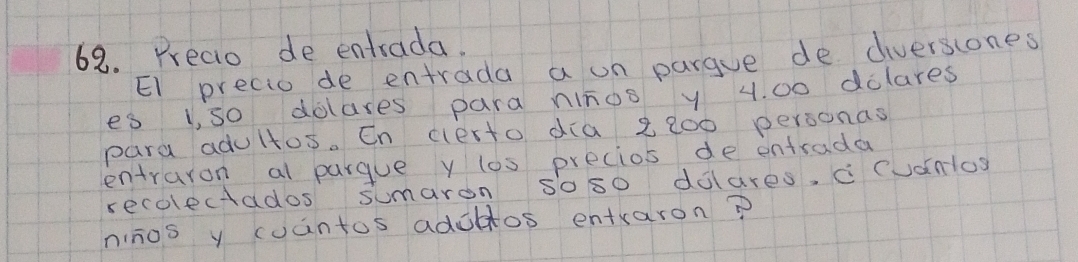 62. Precio de entrada.
El precio de entrada a un parque de diversiones
es 1,50 dolares para niños y 4.00 dolares
para adultos. En cierto día 2200 personas
entraron al parque y los precios de entrada
recolectados sumaron 5050 dólares. ¿ Cuántos
niños y cuántos adultos entraron?